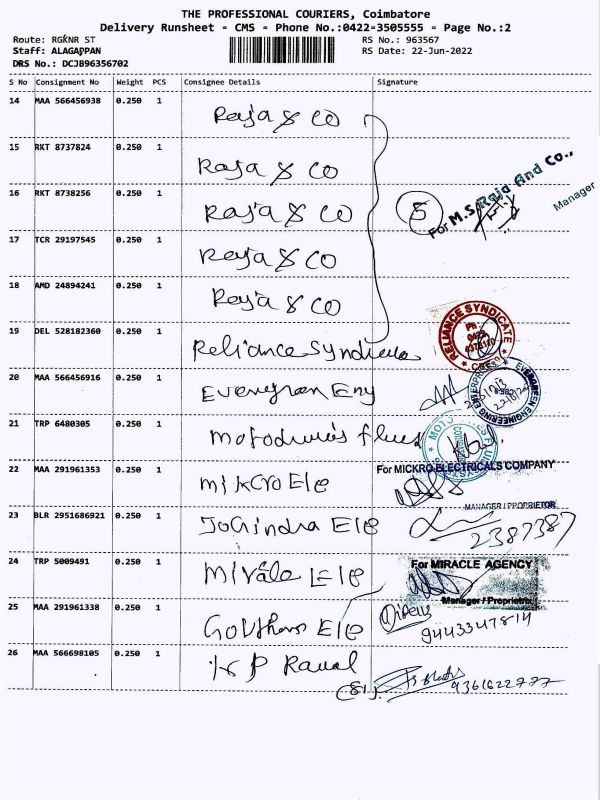 THE PROFESSIONAL COURIERS, Coimbatore
Delivery Runsheet - CMS - Phone No.:0422-3505555 - Page No.:2
Route: RGKNR ST
RS No.: 963567
Staff: ALAGAPPAN
RS Date: 22-Jun-2022
DRS No.: DCJB96356702
S No Consignment No Weight PCS Consignee Details Signature
14 MAA 566456938 0.250 1 Raja & CO
15 RKT 8737824 0.250 1 Raja & CO
16 RKT 8738256 0.250 1 Raja & CO
5
For M.S. Raja And Co.,
Manager
17 TCR 29197545 0.250 1 Raja & CO
18 AMD 24894241 0.250 1 Raja & CO
19 DEL 528182360 0.250 1 Reliance Syndicate
RELIANCE SYNDICATE
20 MAA 566456916 0.250 1 Evergreen Eng
EVERGREEN ENGINEERING ENTERPRISES
21 TRP 6480305 0.250 1
22 MAA 291961353 0.250 1 Mikro Ele
For MICKRO ELECTRICALS COMPANY
MANAGER / PROPRIETOR
23 BLR 2951686921 0.250 1 Jogindra Ele
2387387
24 TRP 5009491 0.250 1 Ele
For MIRACLE AGENCY
Manager / Proprietrix
25 MAA 291961338 0.250 1 Ele
9443347814
26 MAA 566698105 0.250 1 P Raval
9361622777